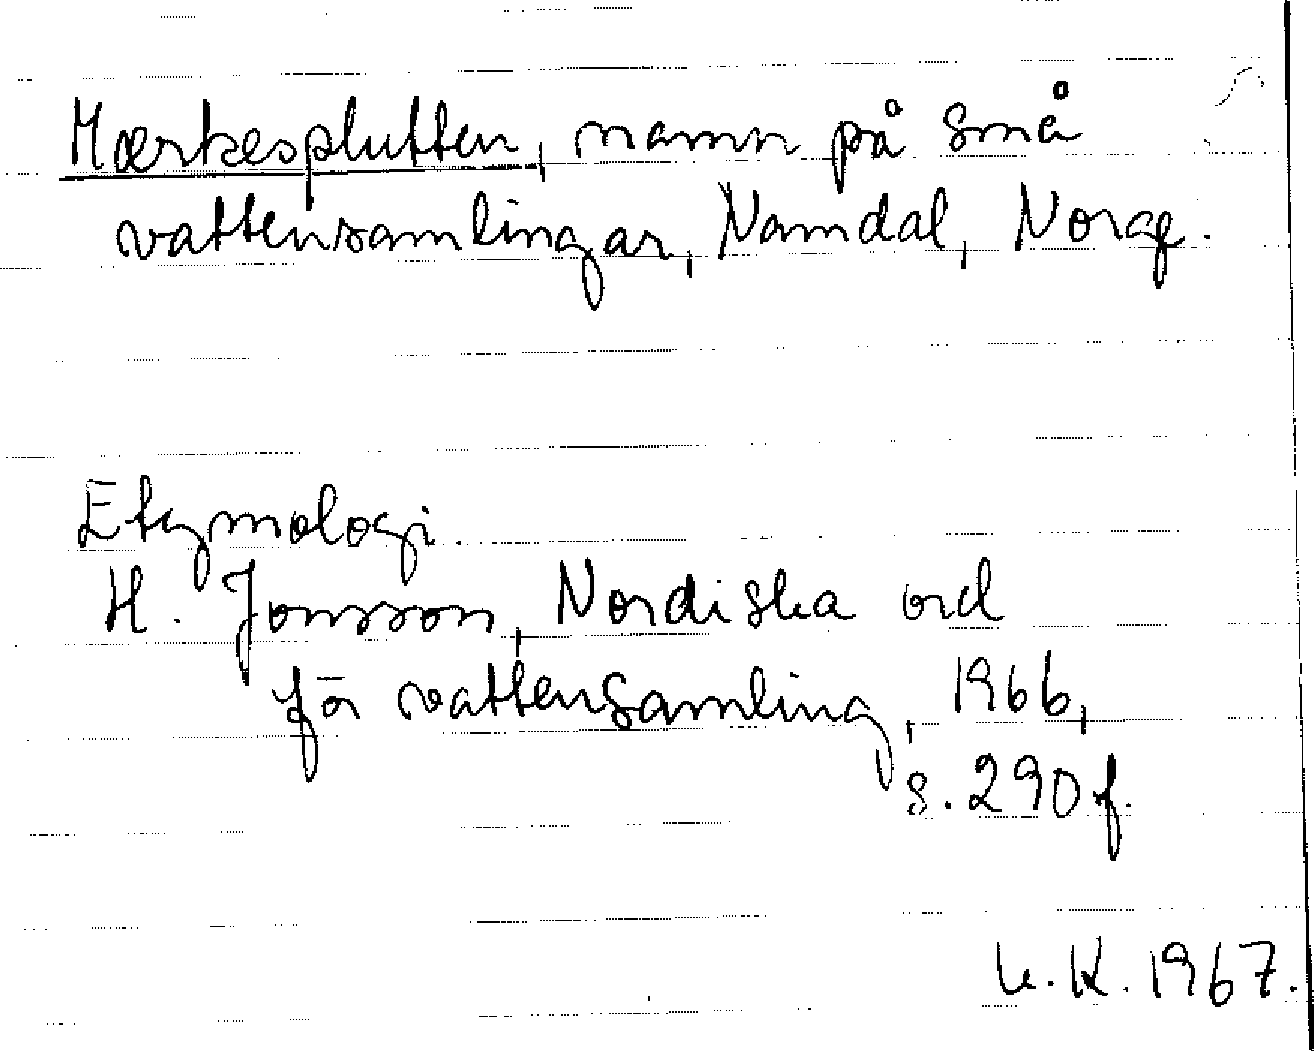 Mærkesplutten, namn på små
vattensamlingar, Namdal, Norge.
Etymologi.
H. Jonsson, Nordiska ord
för vattensamling, 1966,
s. 290 f.
U.K. 1967.